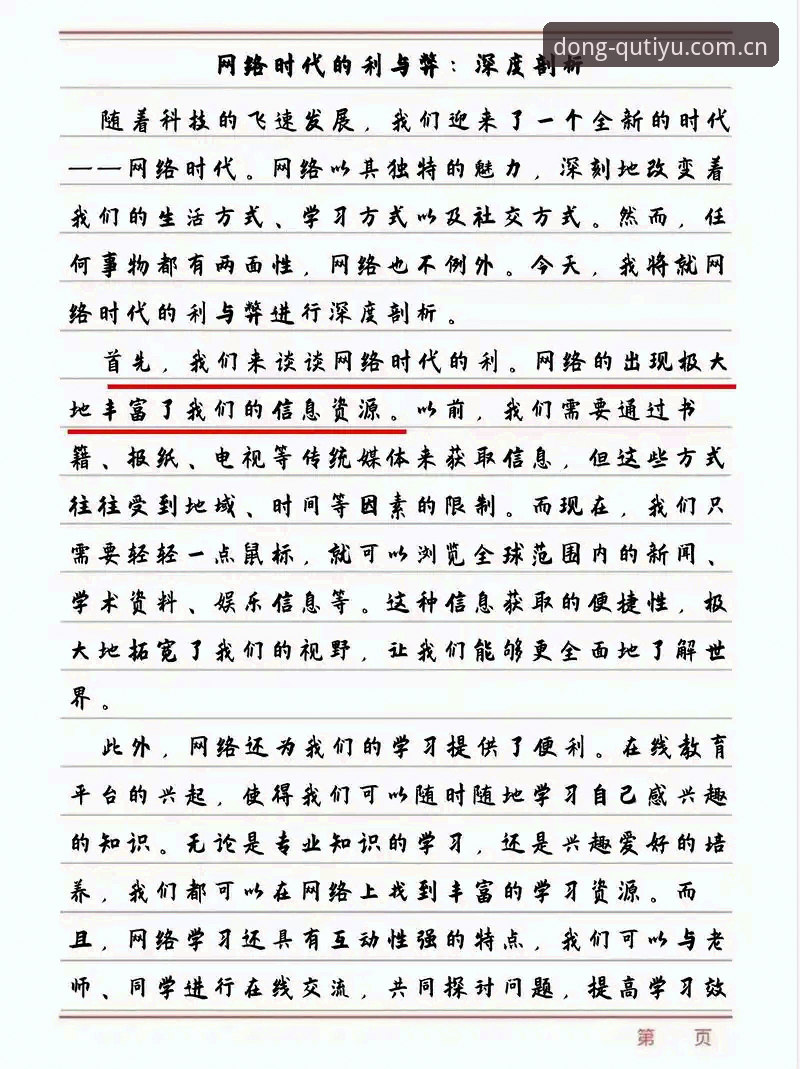 dong-qutiyu.com.cn
网络时代的利与弊：深度剖析
随着科技的飞速发展，我们迎来了一个全新的时代
——网络时代。网络以其独特的魅力，深刻地改变着
我们的生活方式、学习方式以及社交方式。然而，任
何事物都有两面性，网络也不例外。今天，我将就网
络时代的利与弊进行深度剖析。
首先，我们来谈谈网络时代的利。网络的出现极大
地丰富了我们的信息资源。以前，我们需要通过书
籍、报纸、电视等传统媒体来获取信息，但这些方式
往往受到地域、时间等因素的限制。而现在，我们只
需要轻轻一点鼠标，就可以浏览全球范围内的新闻、
学术资料、娱乐信息等。这种信息获取的便捷性，极
大地拓宽了我们的视野，让我们能够更全面地了解世
界。
此外，网络还为我们的学习提供了便利。在线教育
平台的兴起，使得我们可以随时随地学习自己感兴趣
的知识。无论是专业知识的学习，还是兴趣爱好的培
养，我们都可以在网络上找到丰富的学习资源。而
且，网络学习还具有互动性强的特点，我们可以与老
师、同学进行在线交流，共同探讨问题，提高学习效
第 页